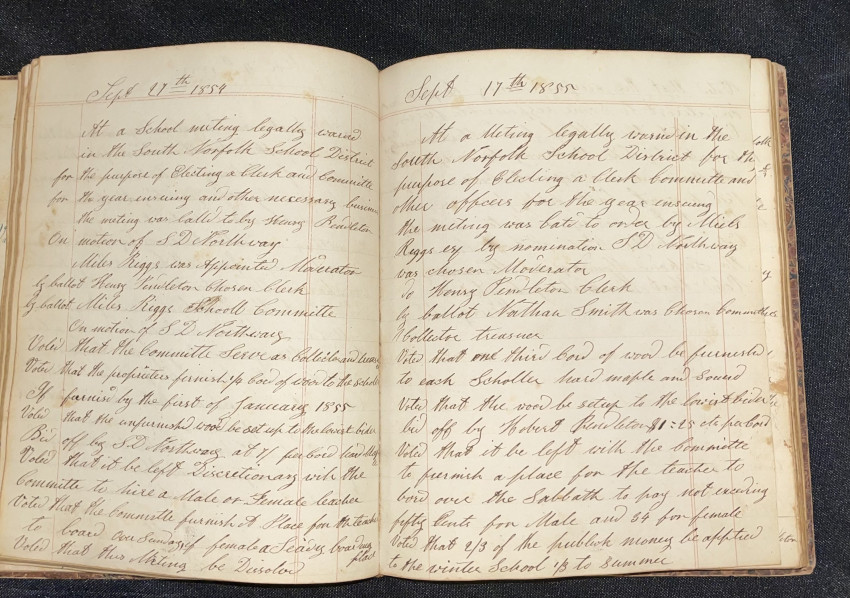 Sept 27th 1854
At a School meting legally warned
in the South Norfolk School District
for the purpose of Electing a Clerk and Committe
for the year ensuing and other necessary
the meting was calld to by Henry Pendleton
On motion of S D Northway
Miles Riggs was Appointed Moderator
by ballot Henry Pendleton Chosen Clerk
by ballot Miles Riggs Schooll Committe
On motion of S D Northway
Voted that the Committe Serve as Collector and
Voted that the proprietors furnish Cord of wood to the
If furnisd by the first of January 1855
Voted that the unfurnishd wood be set up to the lowest bider
Bid off by S D Northway at 7/ per Cord hard
Voted that it be left Discretionary with the
Committe to hire a Male or Female teacher
Voted that the Committe furnish a Place for the teacher
to board over Sunday if female a Steady boarding place
Voted that this Meting be Disolvd
Sept 17th 1855
At a Meting legally warnd in the
South Norfolk School District for the
purpose of Electing a Clerk Committe and
other officers for the year insuing
the meting was cald to order by Miels
Riggs esq by nomination S D Northway
was chosen Moderator
do Henry Pendleton Clerk
by ballot Nathan Smith was Chosen Committe
& Collector treasurer
Voted that one third Cord of wood be furnished
to each Scholler hard maple and Sound
Voted that the wood be set up to the lowest bider
bid off by Hobert Pendleton $1=25 cts per Cord
Voted that it be left with the Committe
to furnish a place for the teacher to
bord over the Sabbath to pay not exceding
fifty Cents for Male and 34 for female
Voted that 2/3 of the publick money be applied
to the winter School 1/3 to Summer